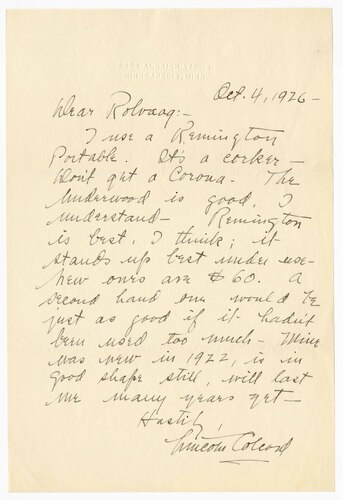 Oct. 4, 1926 -
Dear Rolvaag: -
I use a Remington
Portable. It's a corker -
Don't get a Corona. The
Underwood is good, I
understand - Remington
is best, I think; it
stands up best under use -
New ones are $60. A
second hand one would be
just as good if it hadn't
been used too much - Mine
was new in 1922, is in
good shape still, will last
me many years yet -
Hastily,
Lincoln Colcord